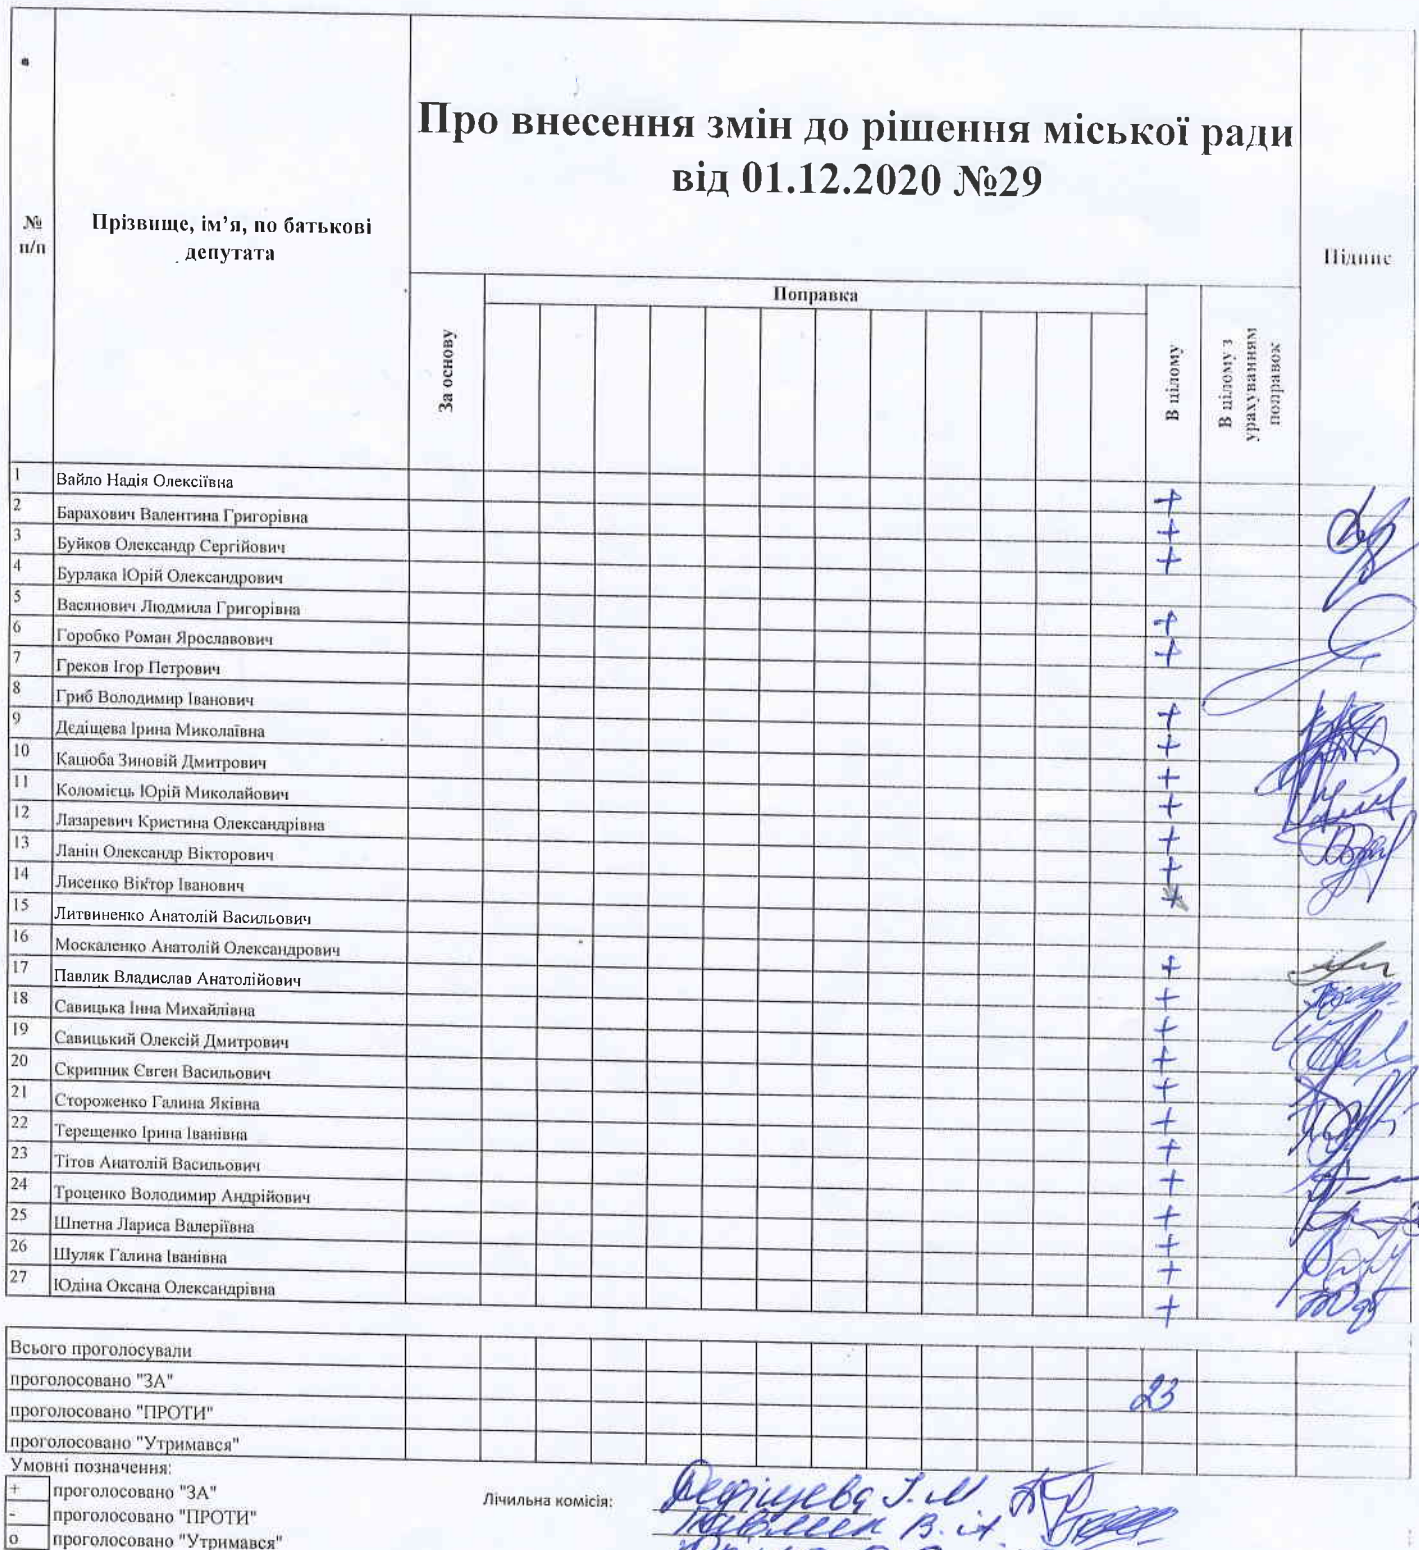 Про внесення змін до рішення міської ради
від 01.12.2020 №29
№
п/п
Прізвище, ім’я, по батькові
депутата
Підпис
За основу
Поправка
В цілому
В цілому з
урахуванням
поправок
1 Вайло Надія Олексіївна +
2 Барахович Валентина Григорівна +
3 Буйков Олександр Сергійович +
4 Бурлака Юрій Олександрович
5 Васянович Людмила Григорівна +
6 Горобко Роман Ярославович +
7 Греков Ігор Петрович
8 Гриб Володимир Іванович +
9 Дєдіщева Ірина Миколаївна +
10 Кацюба Зиновій Дмитрович +
11 Коломієць Юрій Миколайович +
12 Лазаревич Кристина Олександрівна +
13 Ланін Олександр Вікторович +
14 Лисенко Віктор Іванович +
15 Литвиненко Анатолій Васильович
16 Москаленко Анатолій Олександрович +
17 Павлик Владислав Анатолійович +
18 Савицька Інна Михайлівна +
19 Савицький Олексій Дмитрович +
20 Скрипник Євген Васильович +
21 Стороженко Галина Яківна +
22 Терещенко Ірина Іванівна +
23 Тітов Анатолій Васильович +
24 Троценко Володимир Андрійович +
25 Шпетна Лариса Валеріївна +
26 Шуляк Галина Іванівна +
27 Юдіна Оксана Олександрівна +
Всього проголосували
проголосовано "ЗА" 23
проголосовано "ПРОТИ"
проголосовано "Утримався"
Умовні позначення:
+ проголосовано "ЗА"
- проголосовано "ПРОТИ"
о проголосовано "Утримався"
Лічильна комісія:
Дедіщева І.М
Павлик В. А